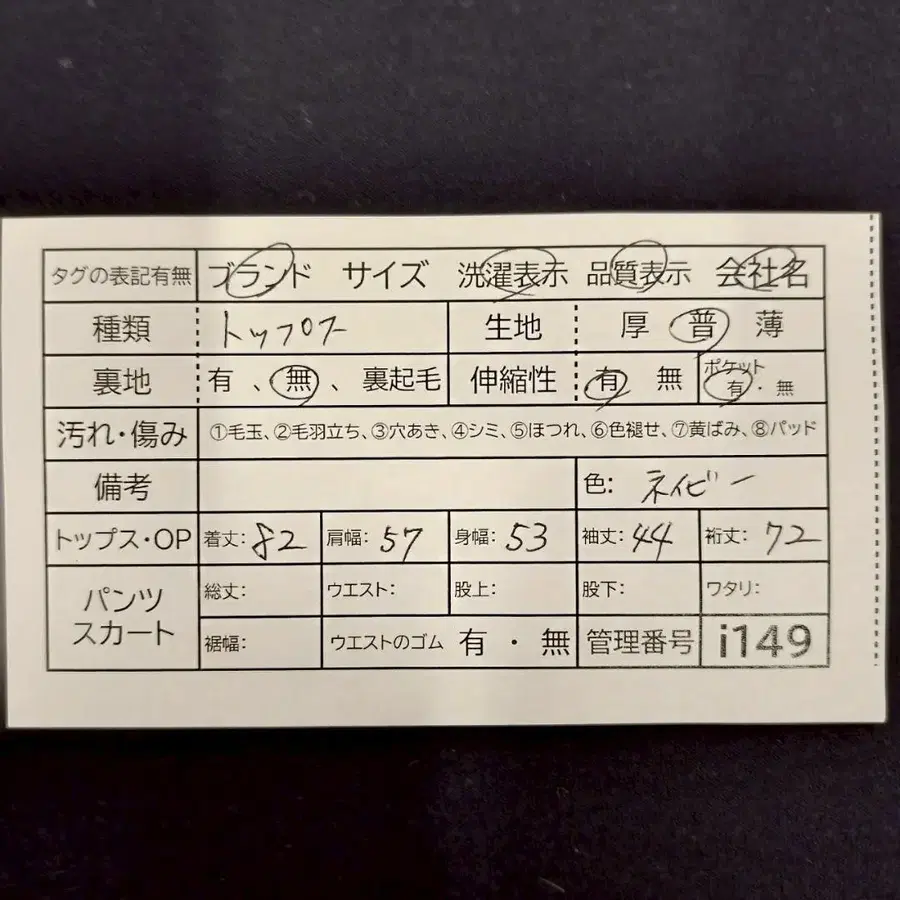 タグの表記有無 ブランド サイズ 洗濯表示 品質表示 会社名
種類 トップス 生地 厚 普 薄
裏地 有 、 無 、 裏起毛 伸縮性 有 無 ポケット 有・無
汚れ・傷み ①毛玉、②毛羽立ち、③穴あき、④シミ、⑤ほつれ、⑥色褪せ、⑦黄ばみ、⑧パッド
備考 色: ネイビー
トップス・OP 着丈: 82 肩幅: 57 身幅: 53 袖丈: 44 裄丈: 72
パンツ スカート 総丈: ウエスト: 股上: 股下: ワタリ:
裾幅: ウエストのゴム 有 ・ 無 管理番号 i149